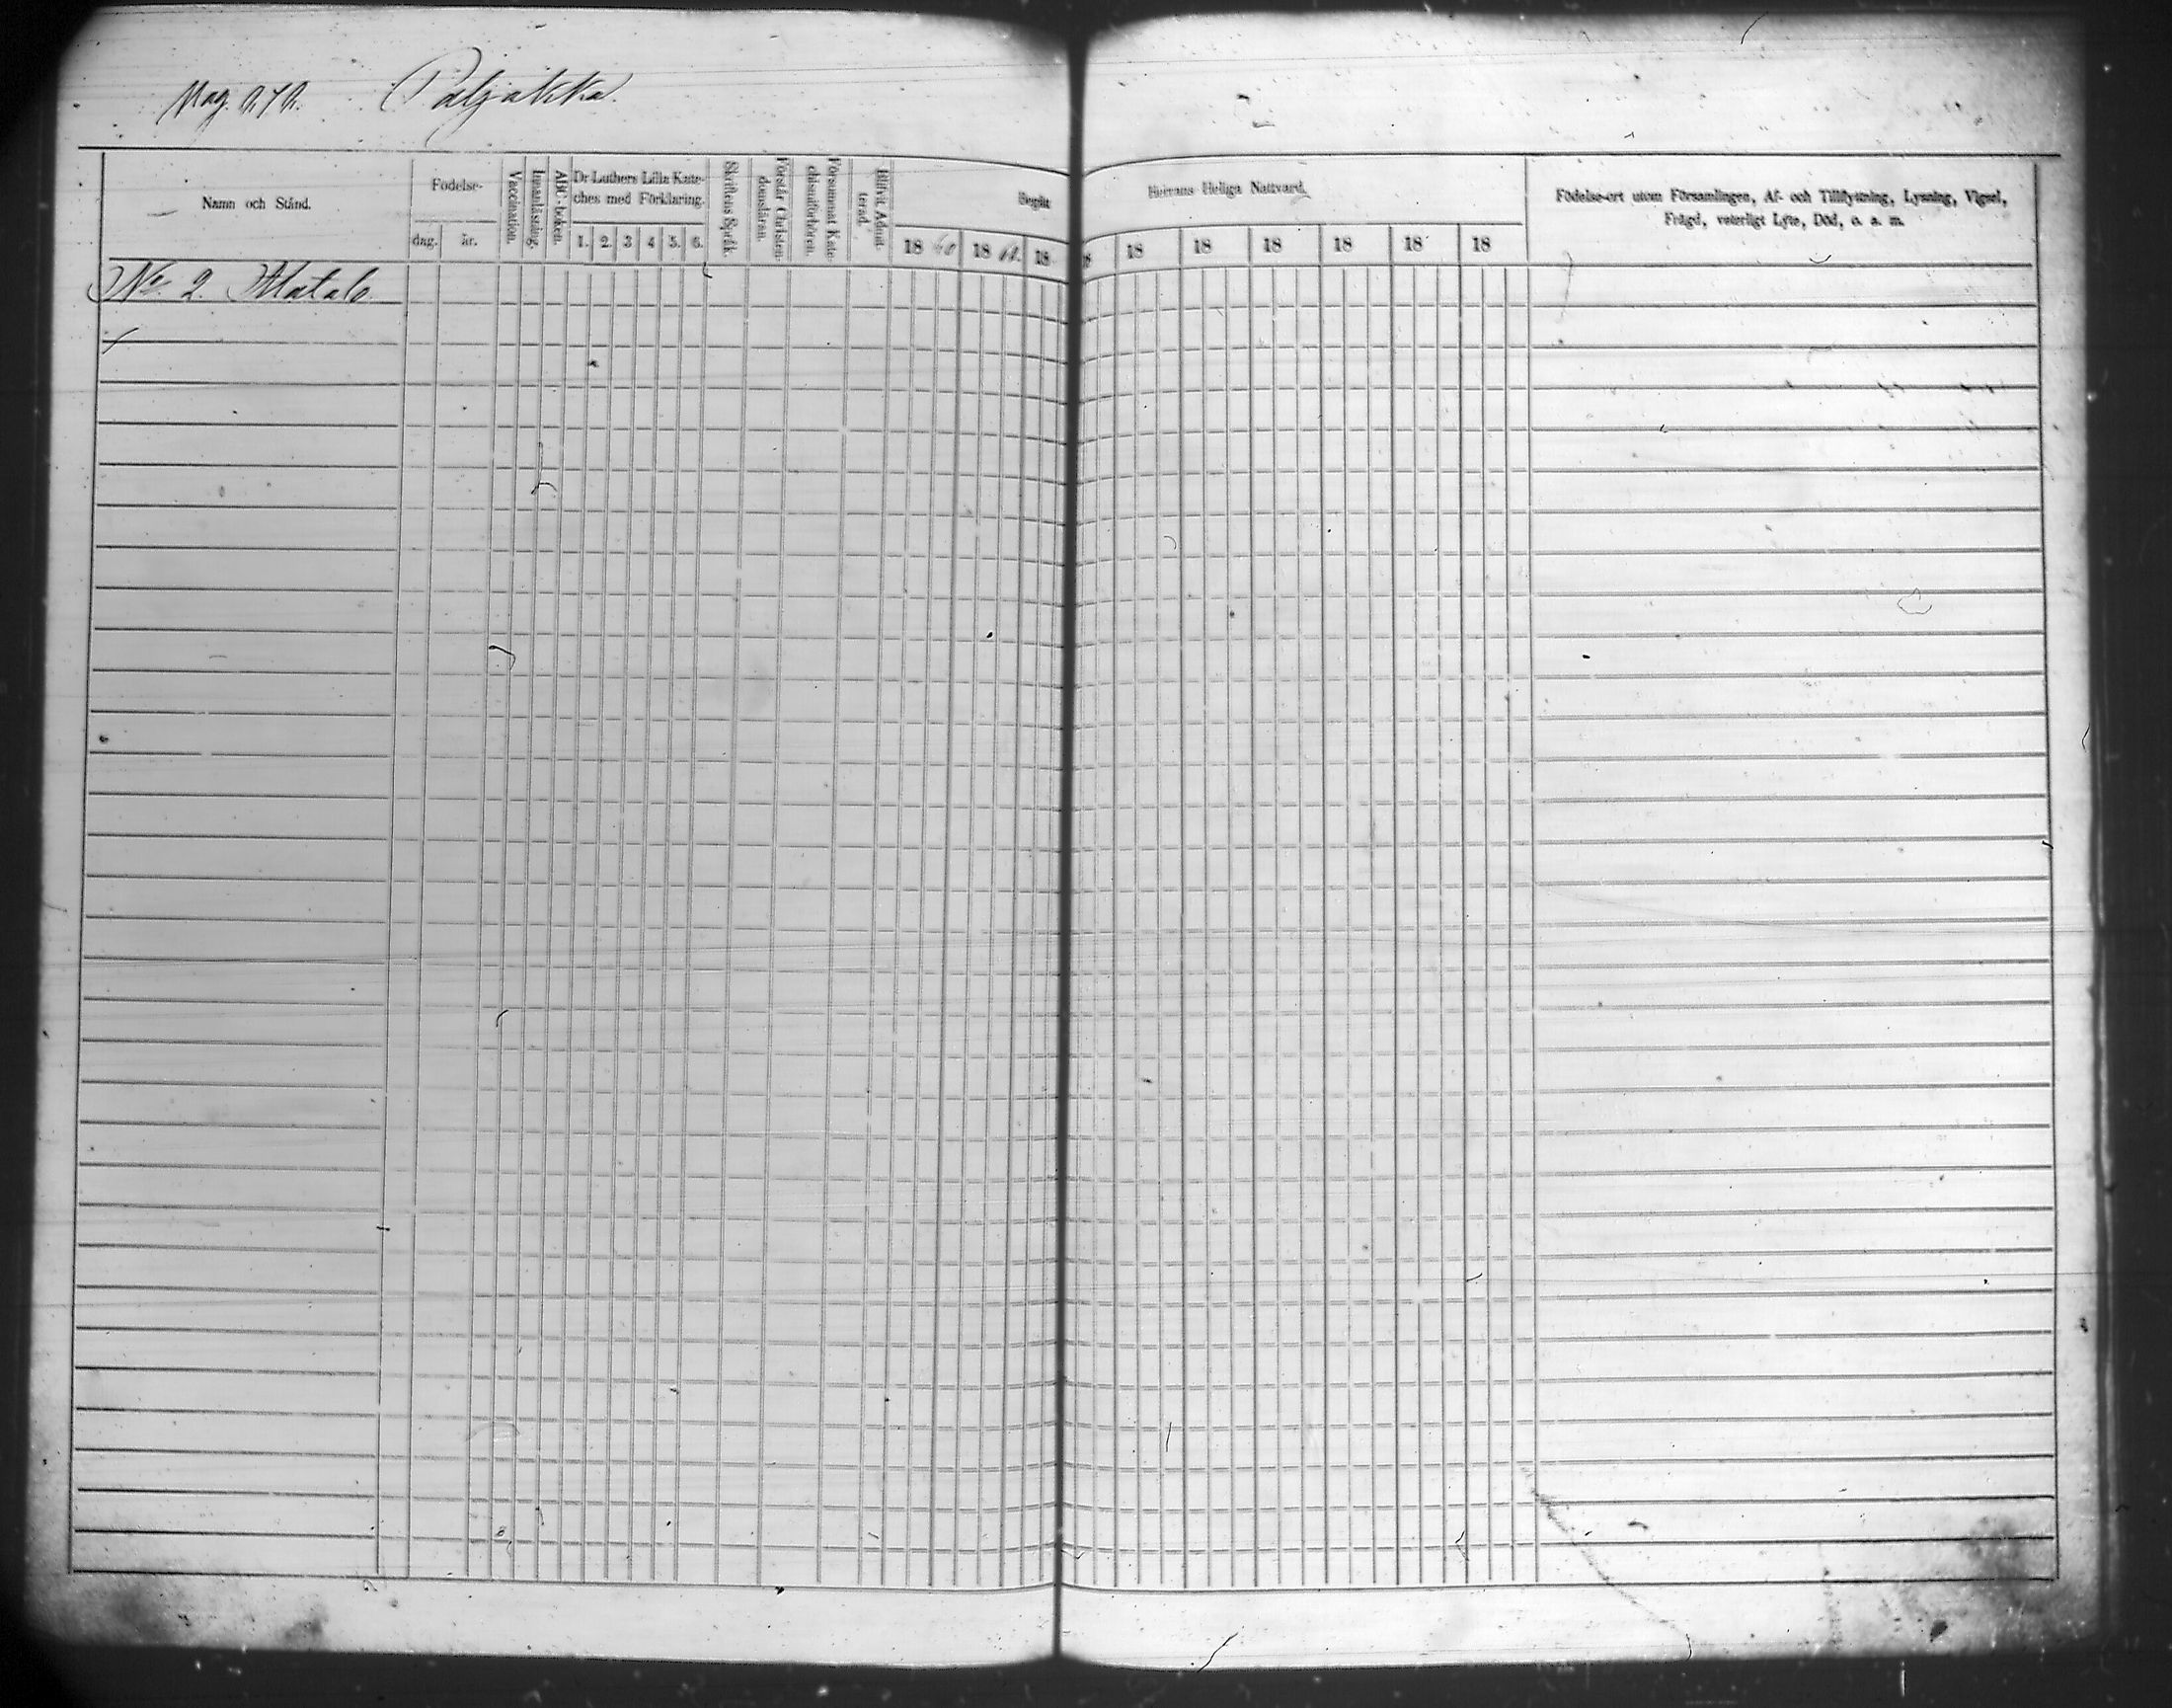 Paljakka.
Namn och Stånd.
Födelse-
dag.
år.
Vaccination.
Innanläsning.
ABC-boken.
Dr Luthers Lilla Kate-
ches med Förklaring.
1. 2. 3 4 5. 6.
Skriftens Språk.
Förstår Christen-
domsläran.
Försummat Kate-
chismiförhören.
Blifvit Admit-
terad.
Begått
Herrans Heliga Nattvard.
18 60 18 61. 18 18 18 18 18 18 18
Födelse-ort utom Församlingen, Af- och Tillflyttning, Lysning, Vigsel,
Frägd, veterligt Lyte, Död, o. a. m.
No 2. Matala